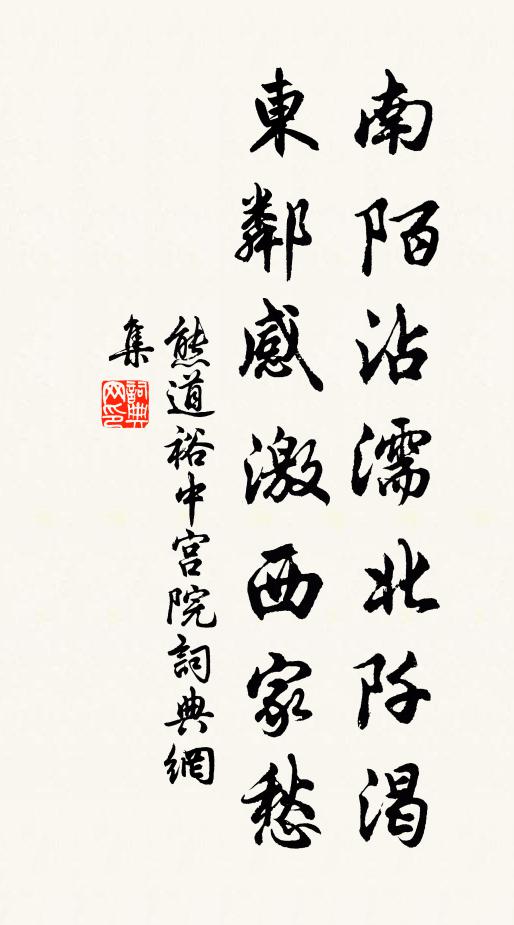 南陌沾濡北阡渴
東鄰感激西家愁
熊道裕中宮院詞典網
集
詞典網印